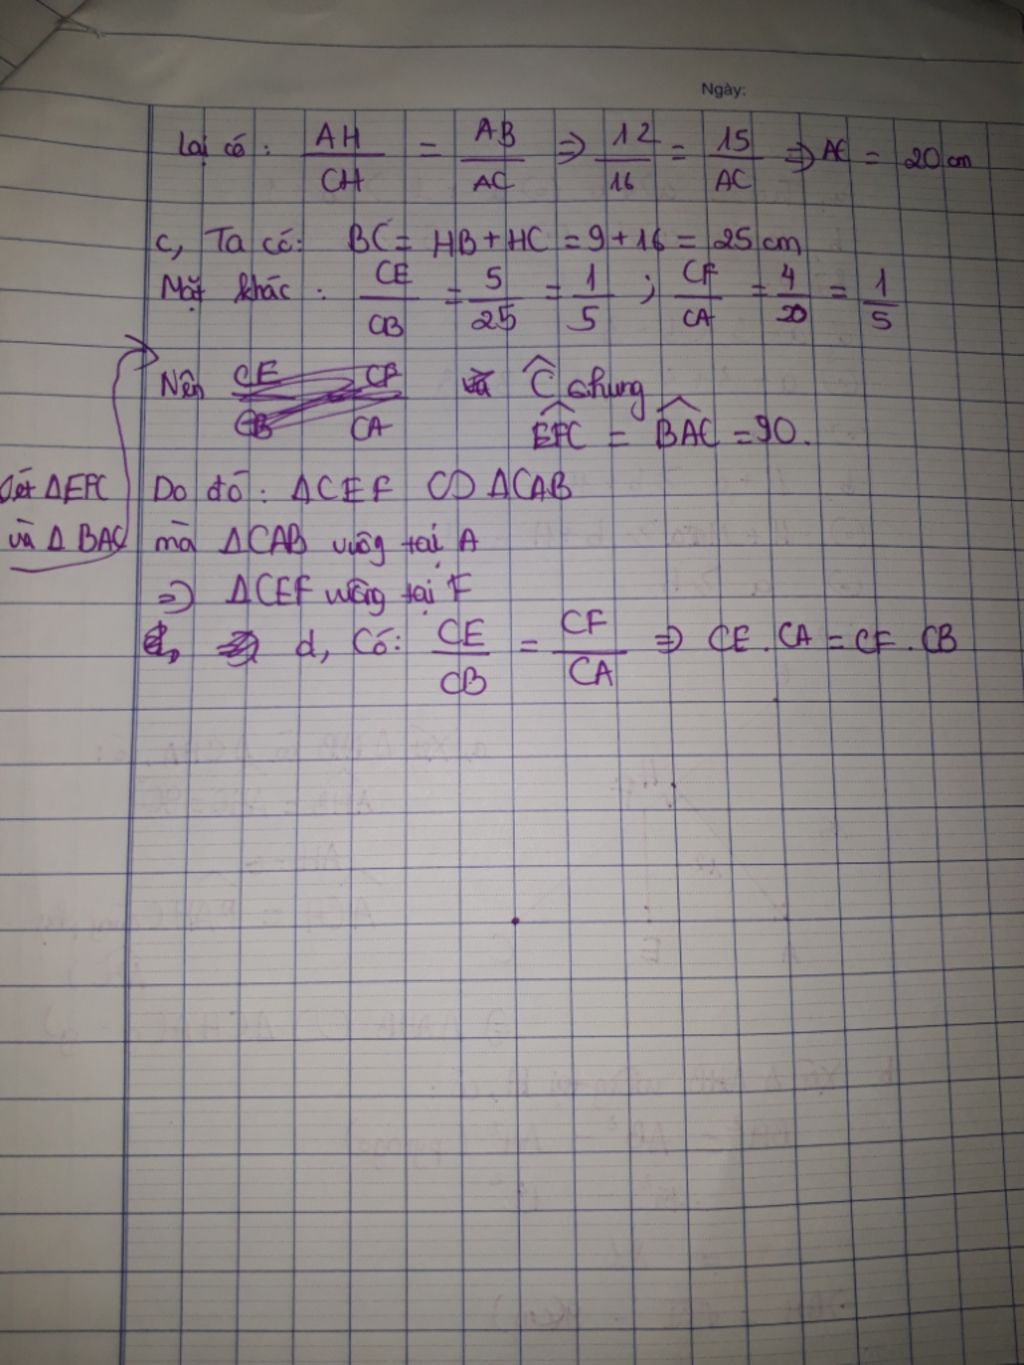 Ngày:
Lại có: AH/CH = AB/AC => 12/16 = 15/AC => AC = 20 cm
c, Ta có: BC = HB + HC = 9 + 16 = 25 cm
Mặt khác: CE/CB = 5/25 = 1/5 ; CF/CA = 4/20 = 1/5
Nên CE/CB CF/CA và Ĉ chung
EFC = BAC = 90.
Xét ΔEFC
và ΔBAC
Do đó: ΔCEF ∽ ΔCAB
mà ΔCAB vuông tại A
=> ΔCEF vuông tại F
d, Có: CE/CB = CF/CA => CE.CA = CF.CB